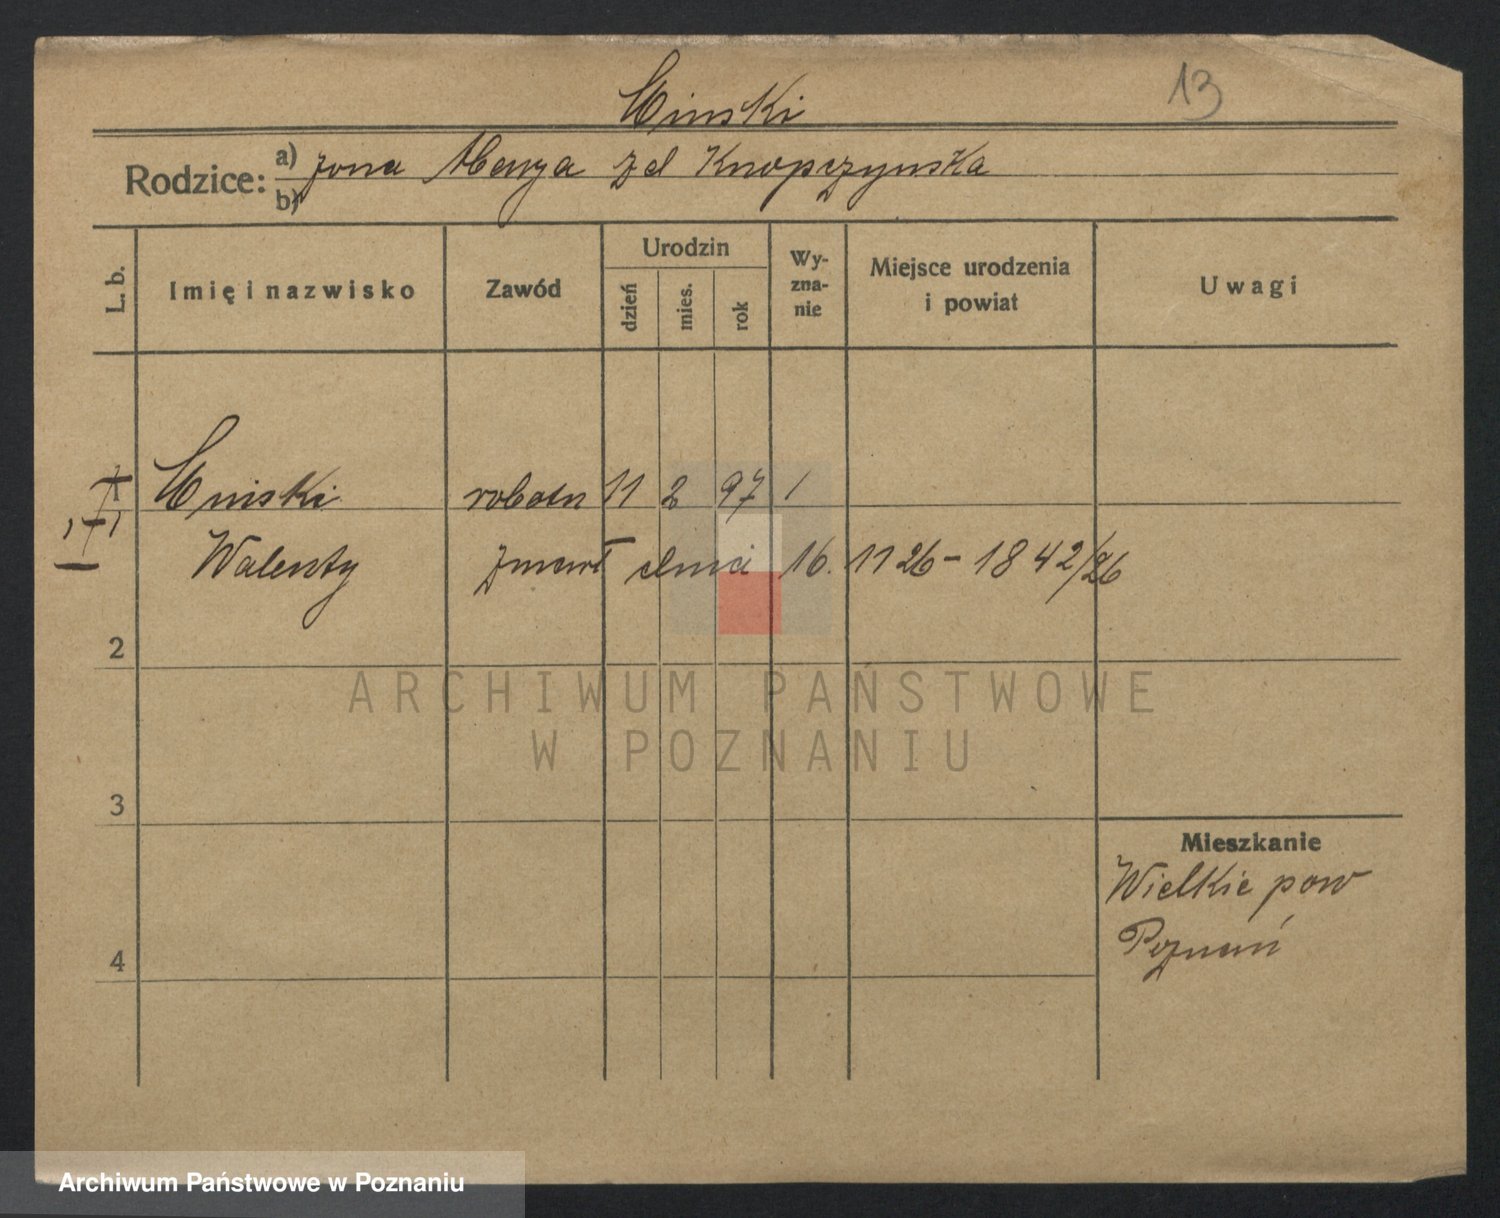 13
Minski
Rodzice: a) żona Maryja zd Knopczynska
b)
L. b.
Imię i nazwisko
Zawód
Urodzin
dzień
mies.
rok
Wy-
zna-
nie
Miejsce urodzenia
i powiat
Uwagi
1 Minski robotn 11 2 97 1
Walenty zmarł dnia 16. 11 26 – 1842/26
2
ARCHIWUM PAŃSTWOWE
W POZNANIU
3
Mieszkanie
Wielkie pow
Poznań
4
Archiwum Państwowe w Poznaniu